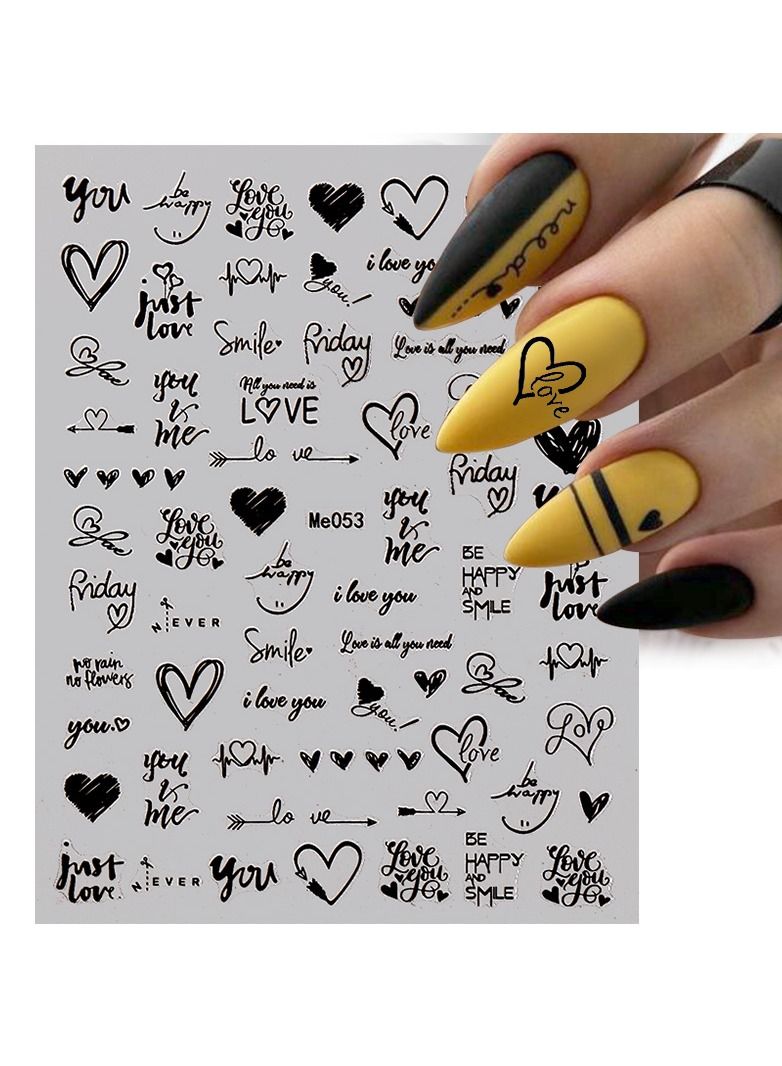 you
be
happy
Love
you
i love yo
just
love
you!
neede....
Smile
Friday
Love is all you need
you
is
me
All you need is
LOVE
love
love
lo ve
Friday
love
Love
you
Me053
you
is
me
be
happy
BE
HAPPY
AND
SMILE
i love you
just
love
Friday
NEVER
Smile
Love is all you need
no rain
no flowers
i love you
you!
love
you.
Love
you
is
me
be
happy
lo ve
just
love
NEVER
you
Love
you
BE
HAPPY
AND
SMILE
Love
you